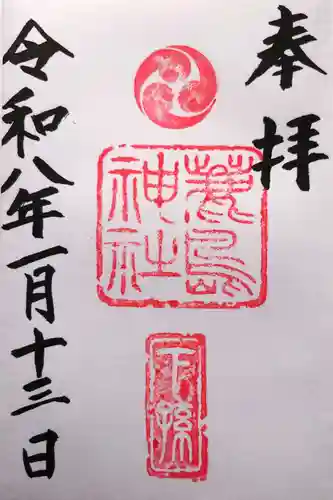 奉拝
蒐島神社
下孫
令和八年一月十三日